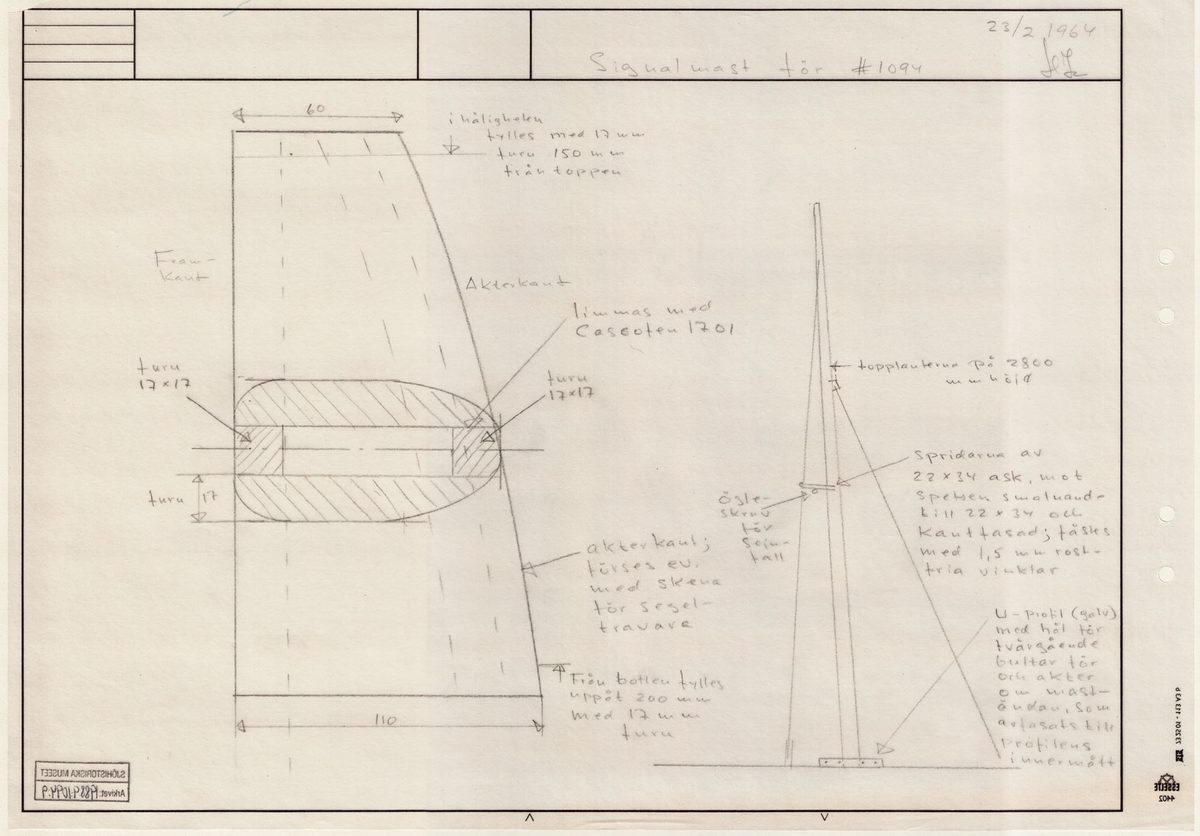 23/2 1964
Signalmast för #1094
60
i håligheten
fylles med 17 mm
furu 150 mm
från toppen
Fram-
kant
Akterkant
limmas med
Cascoten 1701
furu
17×17
furu
17×17
furu 17
topplanterna på 2800
mm höjd
Spridarna av
22×34 ask, mot
spetsen smalnand-
till 22×34 och
kantfasad; fästes
med 1,5 mm rost-
fria vinklar
Ögle-
skruv
för
fall
akterkant;
förses ev.
med skena
för segel-
travare
U-profil (galv)
med hål för
tvärgående
bultar för
och akter
om mast-
ändan, som
avfasats till
profilens
innermått
Från botten fylles
uppåt 200 mm
med 17 mm
furu
110
SJÖHISTORISKA MUSEET
Arkivnr.
ESSELTE
4402